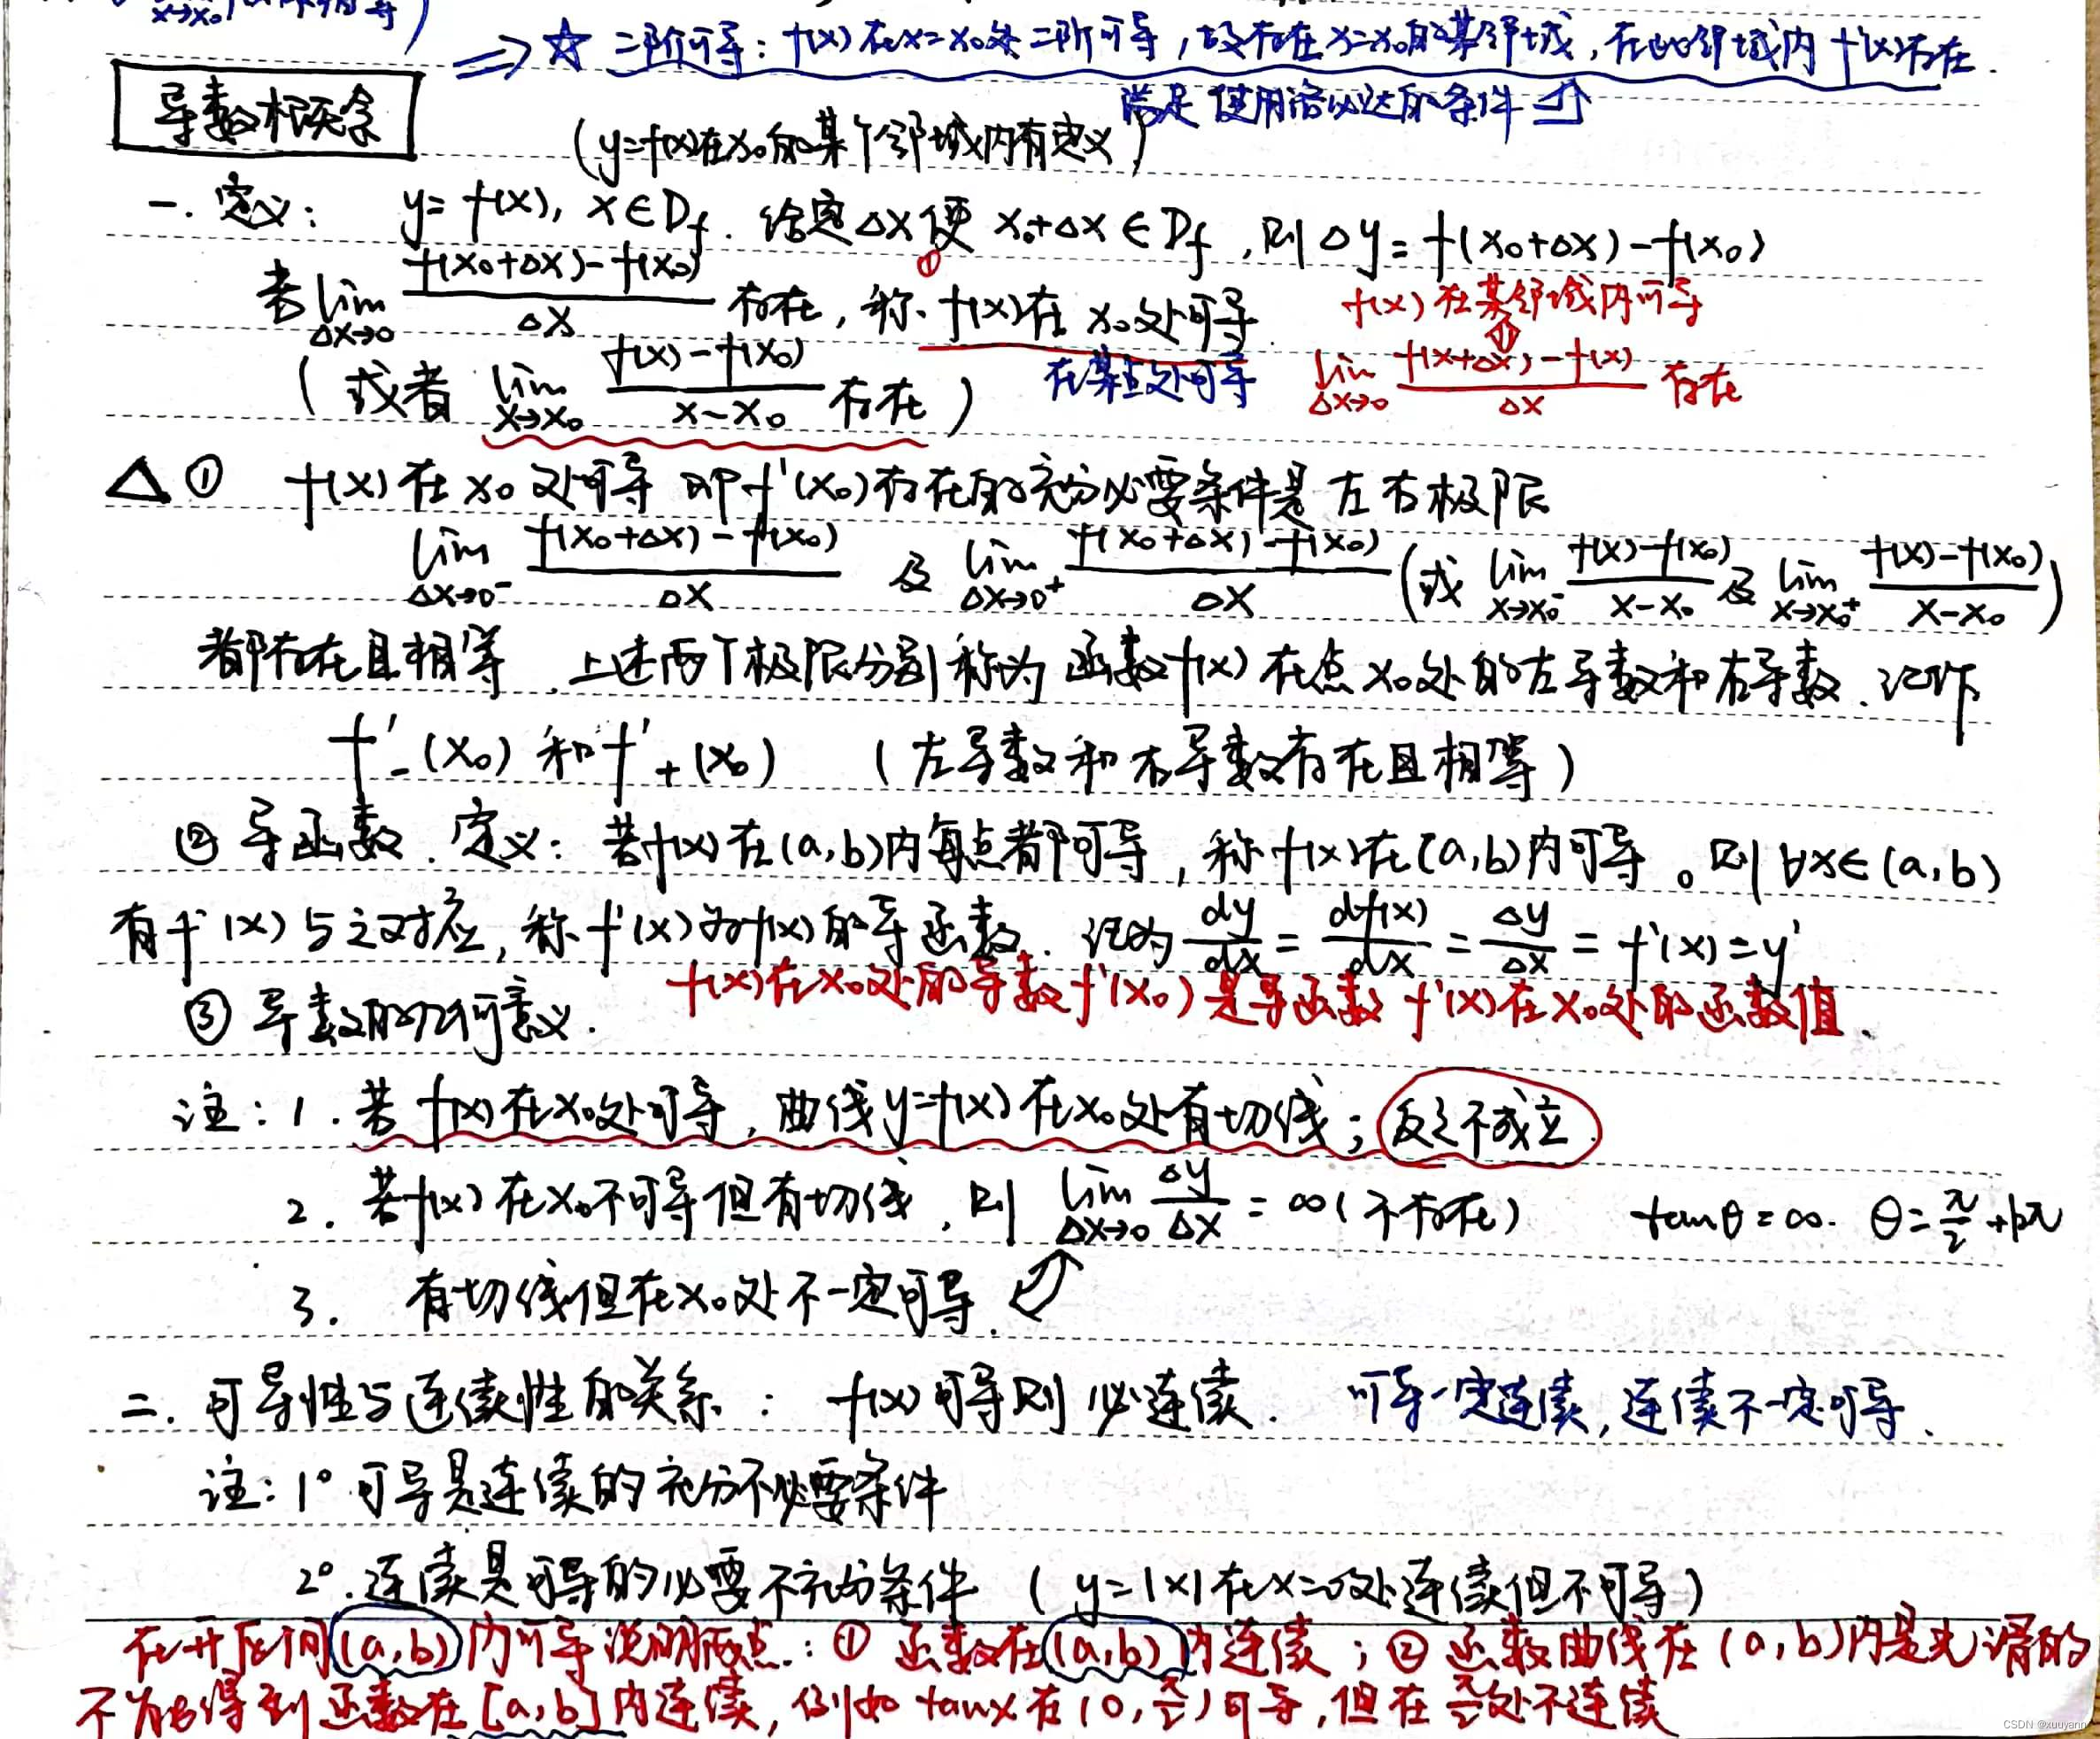 x→x₀
⇒ ☆ 二阶可导：f(x)在x=x₀处二阶可导，故存在x=x₀的某邻域，在此邻域内f'(x)存在.
满足使用洛必达的条件
导数概念
(y=f(x)在x₀的某个邻域内有定义)
一. 定义： y=f(x), x∈D_f. 给定Δx使 x₀+Δx∈D_f, 则Δy=f(x₀+Δx)-f(x₀)
若 lim_{Δx→0} (f(x₀+Δx)-f(x₀))/Δx 存在，称 ① f(x)在x₀处可导.
f(x)在某邻域内可导
(或者 lim_{x→x₀} (f(x)-f(x₀))/(x-x₀) 存在)
在某点处可导
lim_{Δx→0} (f(x+Δx)-f(x))/Δx 存在
△① f(x)在x₀处可导 即f'(x₀)存在的充分必要条件是左右极限
lim_{Δx→0⁻} (f(x₀+Δx)-f(x₀))/Δx 及 lim_{Δx→0⁺} (f(x₀+Δx)-f(x₀))/Δx (或 lim_{x→x₀⁻} (f(x)-f(x₀))/(x-x₀) 及 lim_{x→x₀⁺} (f(x)-f(x₀))/(x-x₀))
都存在且相等. 上述两个极限分别称为函数f(x)在点x₀处的左导数和右导数. 记作
f'₋(x₀)和f'₊(x₀) (左导数和右导数存在且相等)
② 导函数. 定义：若f(x)在(a,b)内每点都可导，称f(x)在(a,b)内可导。则∀x∈(a,b)
有f'(x)与之对应, 称f'(x)为f(x)的导函数. 记为 dy/dx = df(x)/dx = Δy/Δx = f'(x)=y'
f(x)在x₀处的导数f'(x₀)是导函数f'(x)在x₀处的函数值.
③ 导数的几何意义.
注：1. 若f(x)在x₀处可导，曲线y=f(x)在x₀处有切线；反之不成立.
2. 若f(x)在x₀不可导但有切线, 则 lim_{Δx→0} Δy/Δx = ∞(不存在) tanθ=∞. θ=π/2+kπ
3. 有切线但在x₀处不一定可导.
二. 可导性与连续性的关系： f(x)可导则必连续. 可导一定连续, 连续不一定可导.
注：1° 可导是连续的充分不必要条件
2°. 连续是可导的必要不充分条件 (y=|x|在x=0处连续但不可导)
在开区间(a,b)内可导说明两点：① 函数在(a,b)内连续；② 函数曲线在(a,b)内是光滑的
不能得到函数在[a,b]内连续, 例如tanx在(0,π/2)可导, 但在π/2处不连续
CSDN @xuuyann